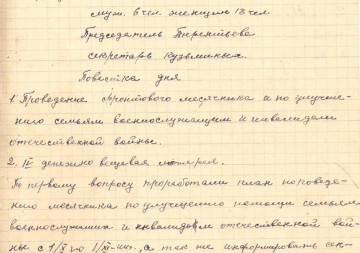 муж. 6 чел. женщин 13 чел
Председатель Терентьева
секретарь Кузьминых.
Повестка дня
1. Проведение фронтового месячника и по улучше-
нию семьям военнослужащим и инвалидам
отечественной войны.
2. IV денежно вещевая лотерея.
По первому вопросу проработали план по проведе-
нию месячника по улучшению помощи семьям
военнослужащих и инвалидам отечественной вой-
ны с 1/X по 1/XI-44г., а так же информировать сек-